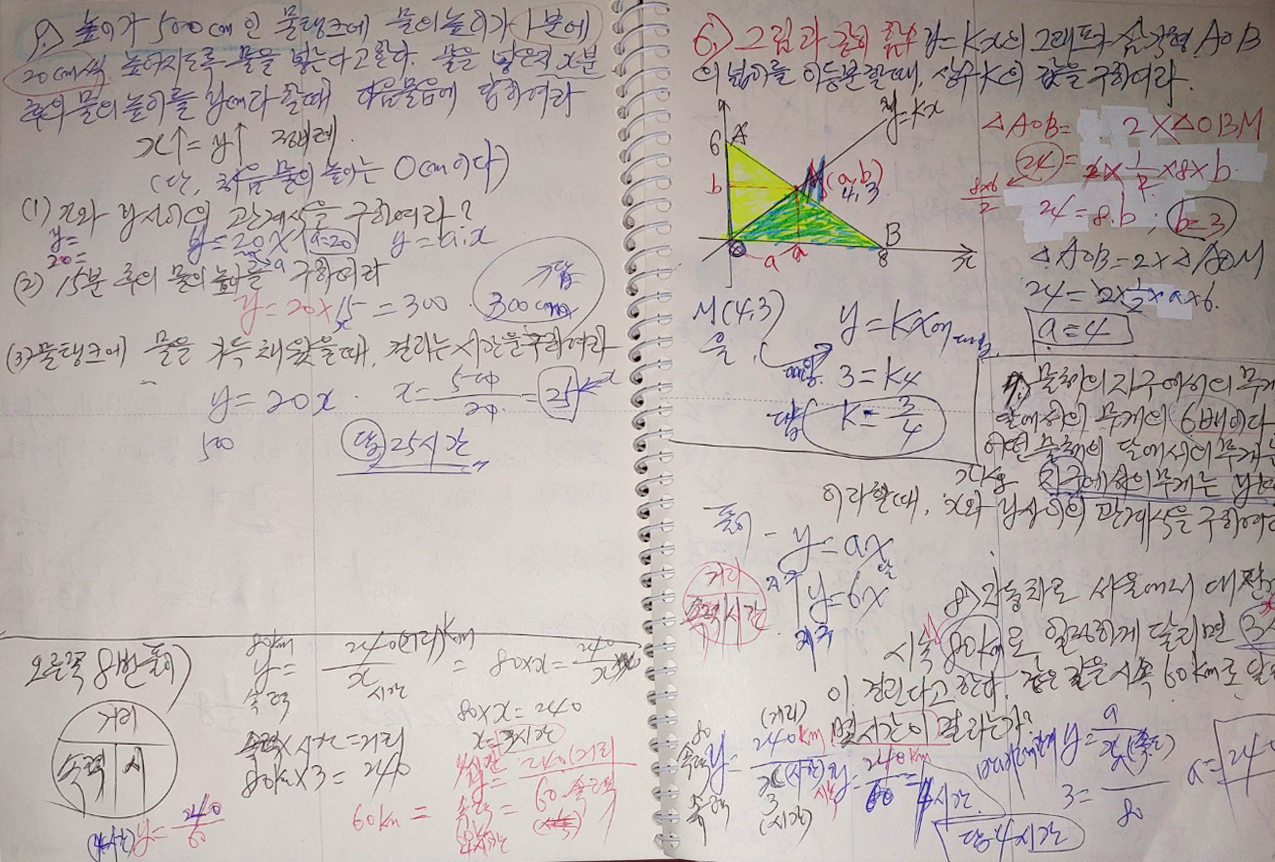 9.) 높이가 500cm인 물탱크에 물의 높이가 1분에
20cm씩 높아지도록 물을 넣는다고 한다. 물을 넣은지 x분
후의 물의 높이를 y라 할때 다음물음에 답하여라
x↑ = y↑ 정비례
(단, 처음 물의 높이는 0cm이다)
(1) x와 y사이의 관계식을 구하여라?
y= y=20x (a=20) y=a.x
20=
(2) 15분 후의 물의 높이를 구하여라
y=20×15=300
300cm
(3) 물탱크에 물을 가득 채웠을때, 걸리는 시간을 구하여라
y=20x. x=500/20=25
500
답 25시간
오른쪽 8번풀이)
거리
속력 시
80km
y= 240(거리)km / x 시간 = 80×x=240
속력
80×x=240
x=3시간
속력×시간=거리
80km×3=240
y=240/60
60km=
240(거리
60 속력
6.) 그림과 같이 함수 y=kx의 그래프가 삼각형 AOB
의 넓이를 이등분할때, 상수 k의 값을 구하여라.
y=kx
6 A
b M(a,b)
4,3
B
a a 8 x
△AOB= 2×△OBM
24=2×1/2×8×b
8×6/2
24=8.b; b=3
△AOB=2×△AOM
24=2×1/2×a×6.
a=4
M(4,3)
을
y=kx에 대입
3=k4
답 k=3/4
7.) 물체의 지구에서의 무게
달에서의 무게의 6배이다
어떤 물체의 달에서의 무게는
지구에서의 무게는 y
이라할때, x와 y사이의 관계식을 구하여라
풀이 - y=ax
달
y=6x
지구
거리
속력 시간
8.) 자동차로 서울에서 대전
시속 80km로 일정하게 달리면 3
이 걸린다고 한다. 같은 길을 시속 60km로 달
몇시간이 걸리는가?
(거리)
80
속력 y=240km / x(시간) y=240km/60=4시간.
속력 3
(시간)
y=a/x(속력)
3= /80
a=240
답 4시간